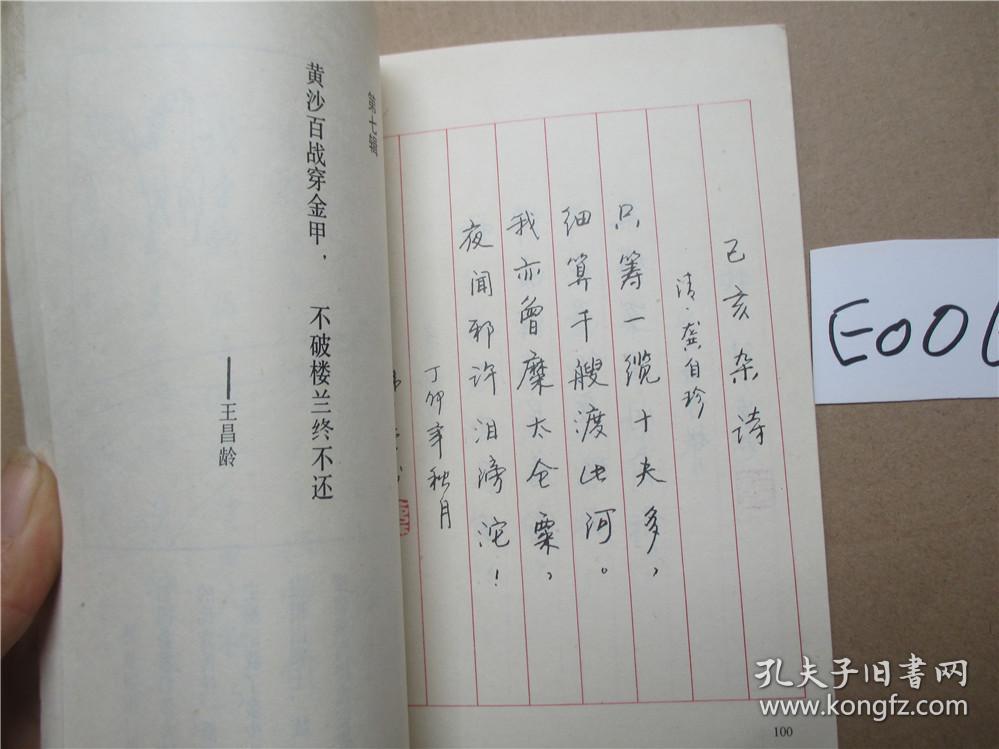 第七辑
黄沙百战穿金甲，
不破楼兰终不还
——王昌龄
己亥杂诗
清·龚自珍
只筹一缆十夫多，
细算千艘渡此河。
我亦曾糜太仓粟，
夜闻邪许泪滂沱！
丁卯年秋月
100
E001
孔夫子旧书网
www.kongfz.com